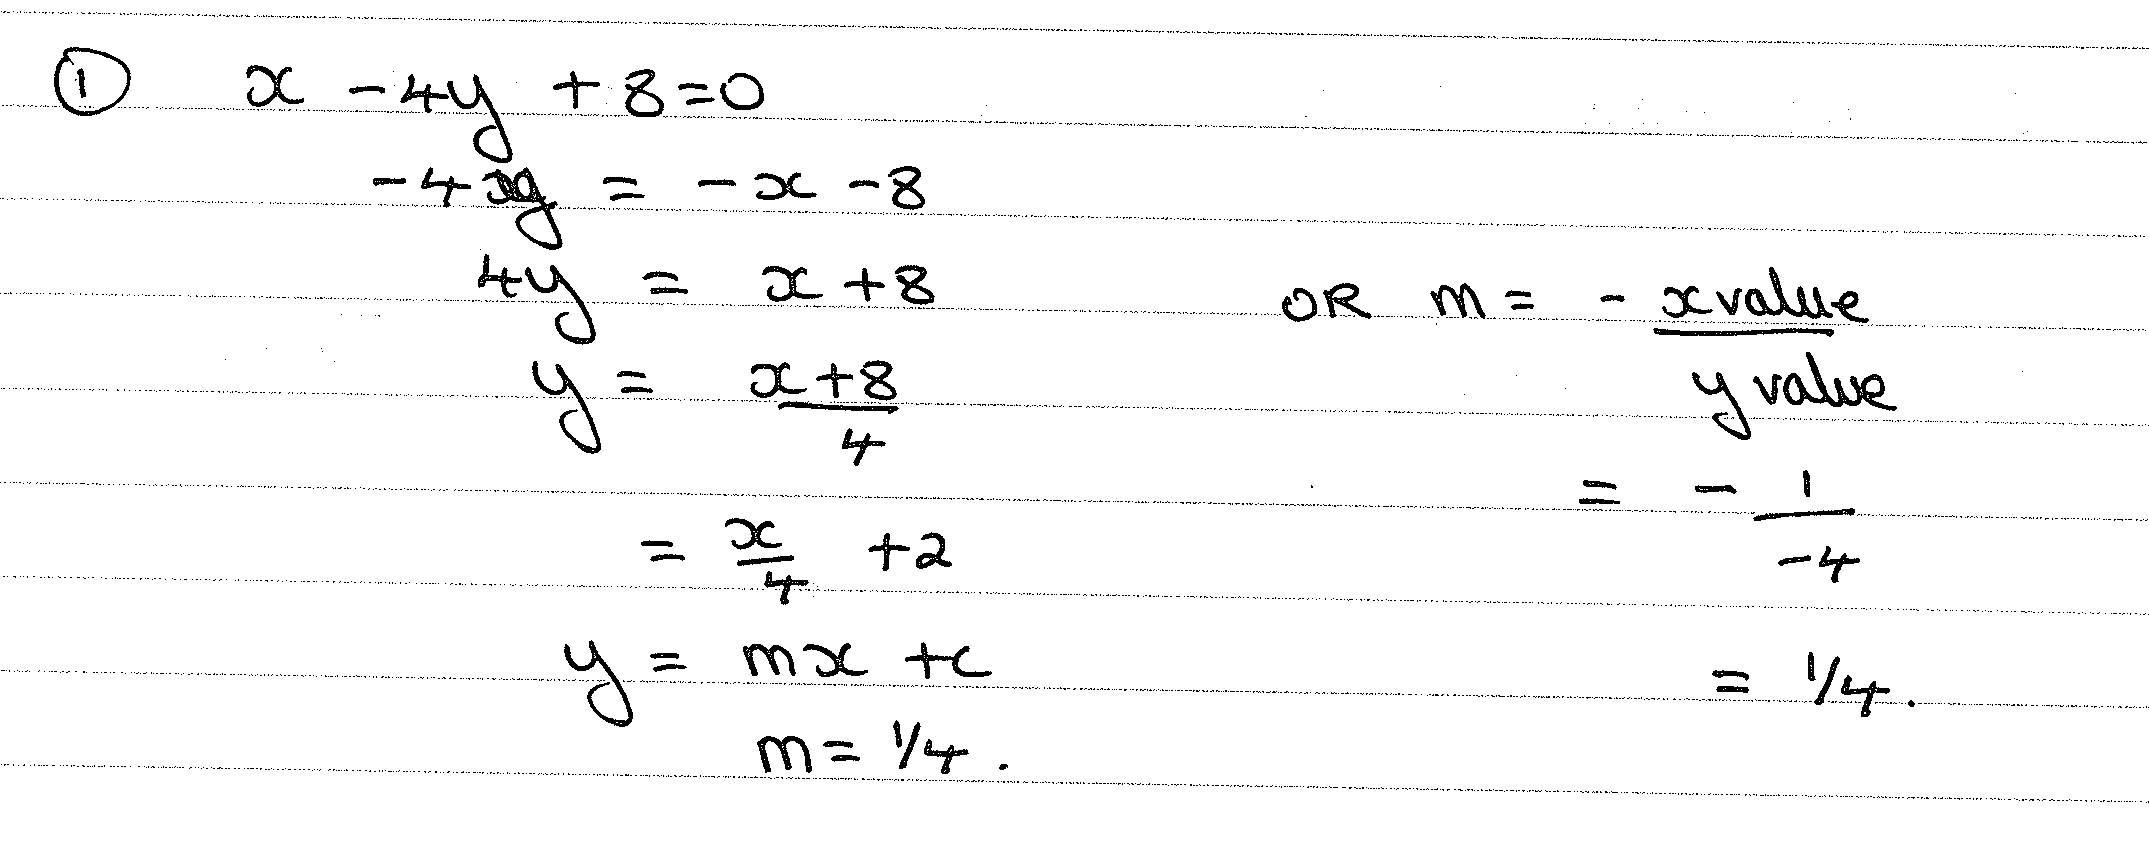 ① x - 4y + 8 = 0
-4y = -x - 8
4y = x + 8
y = x + 8
4
= x/4 + 2
y = mx + c
m = 1/4.
OR m = - x value
y value
= - 1
-4
= 1/4.